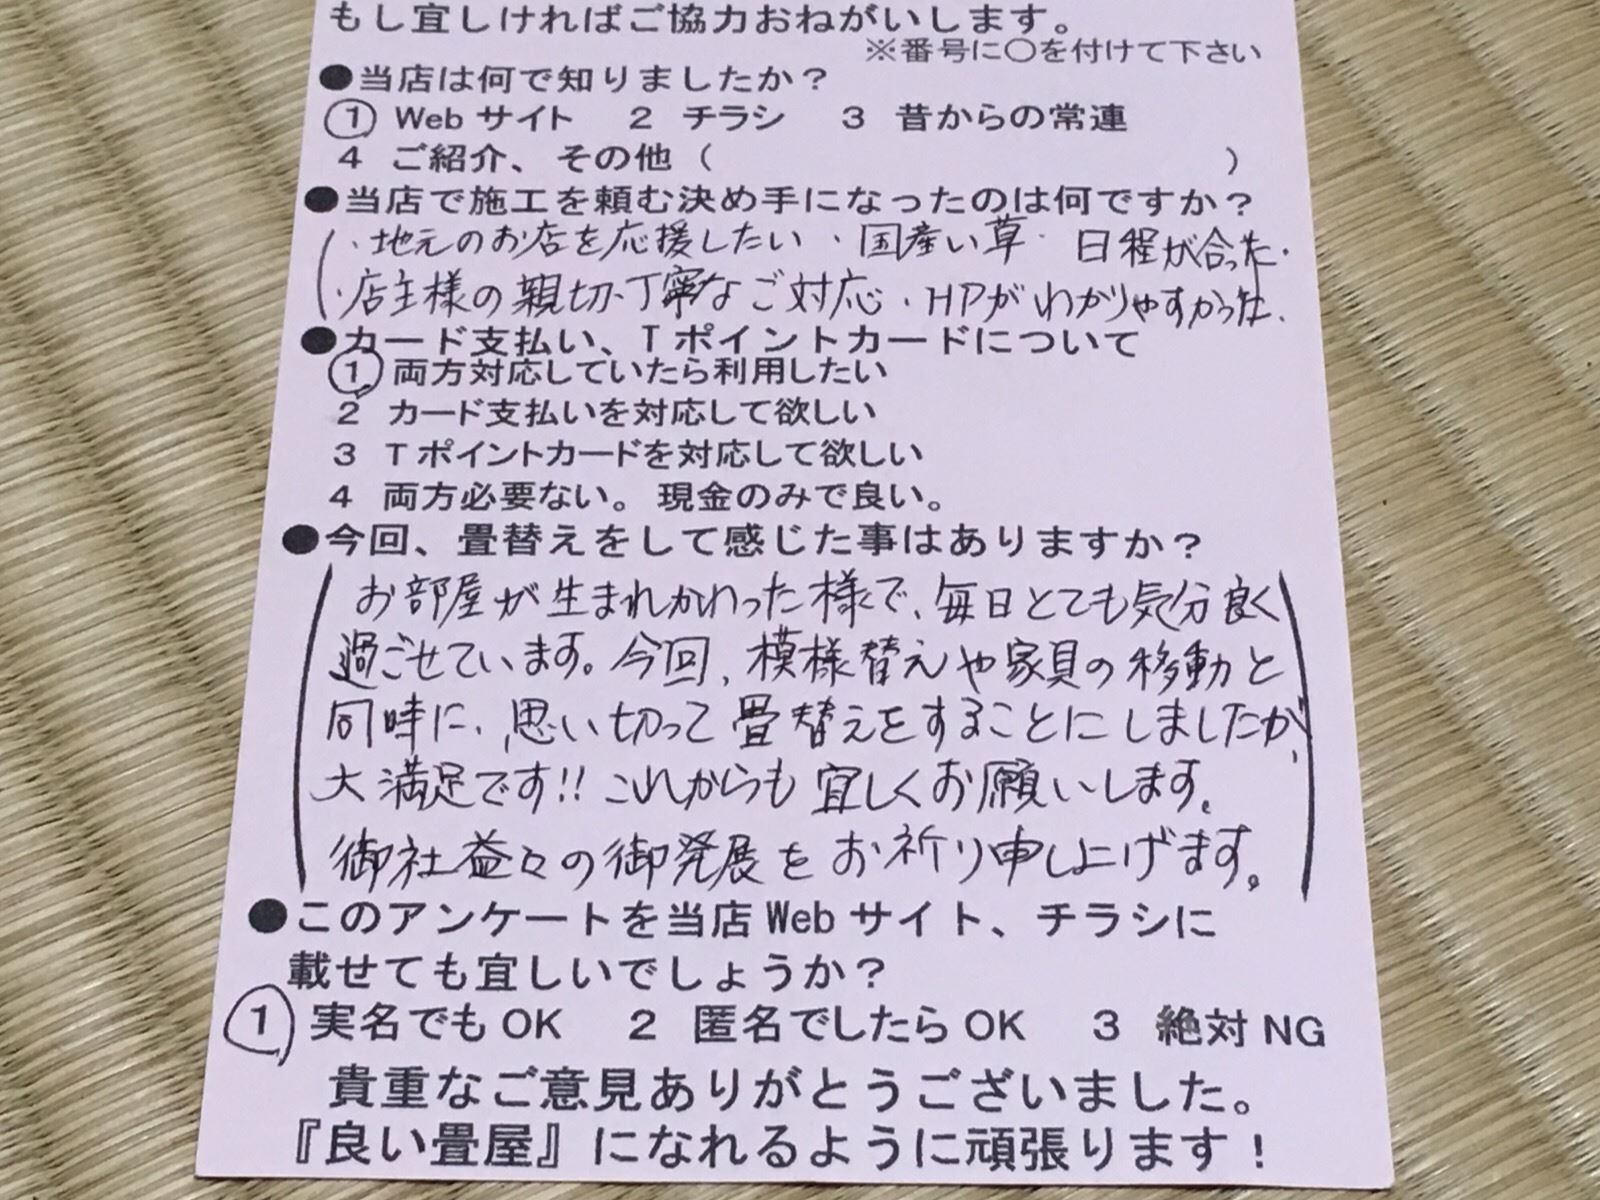 もし宜しければご協力おねがいします。
※番号に○を付けて下さい
●当店は何で知りましたか？
① Webサイト 2 チラシ 3 昔からの常連
4 ご紹介、その他（ ）
●当店で施工を頼む決め手になったのは何ですか？
・地元のお店を応援したい ・国産い草・ 日程が合った・
・店主様の親切、丁寧なご対応・HPがわかりやすかった、
●カード支払い、Tポイントカードについて
① 両方対応していたら利用したい
2 カード支払いを対応して欲しい
3 Tポイントカードを対応して欲しい
4 両方必要ない。現金のみで良い。
●今回、畳替えをして感じた事はありますか？
お部屋が生まれかわった様で、毎日とても気分良く
過ごせています。今回、模様替えや家具の移動と
同時に、思い切って畳替えをすることにしましたが、
大満足です!! これからも宜しくお願いします。
御社益々の御発展をお祈り申し上げます。
●このアンケートを当店Webサイト、チラシに
載せても宜しいでしょうか？
① 実名でもOK 2 匿名でしたらOK 3 絶対NG
貴重なご意見ありがとうございました。
『良い畳屋』になれるように頑張ります！